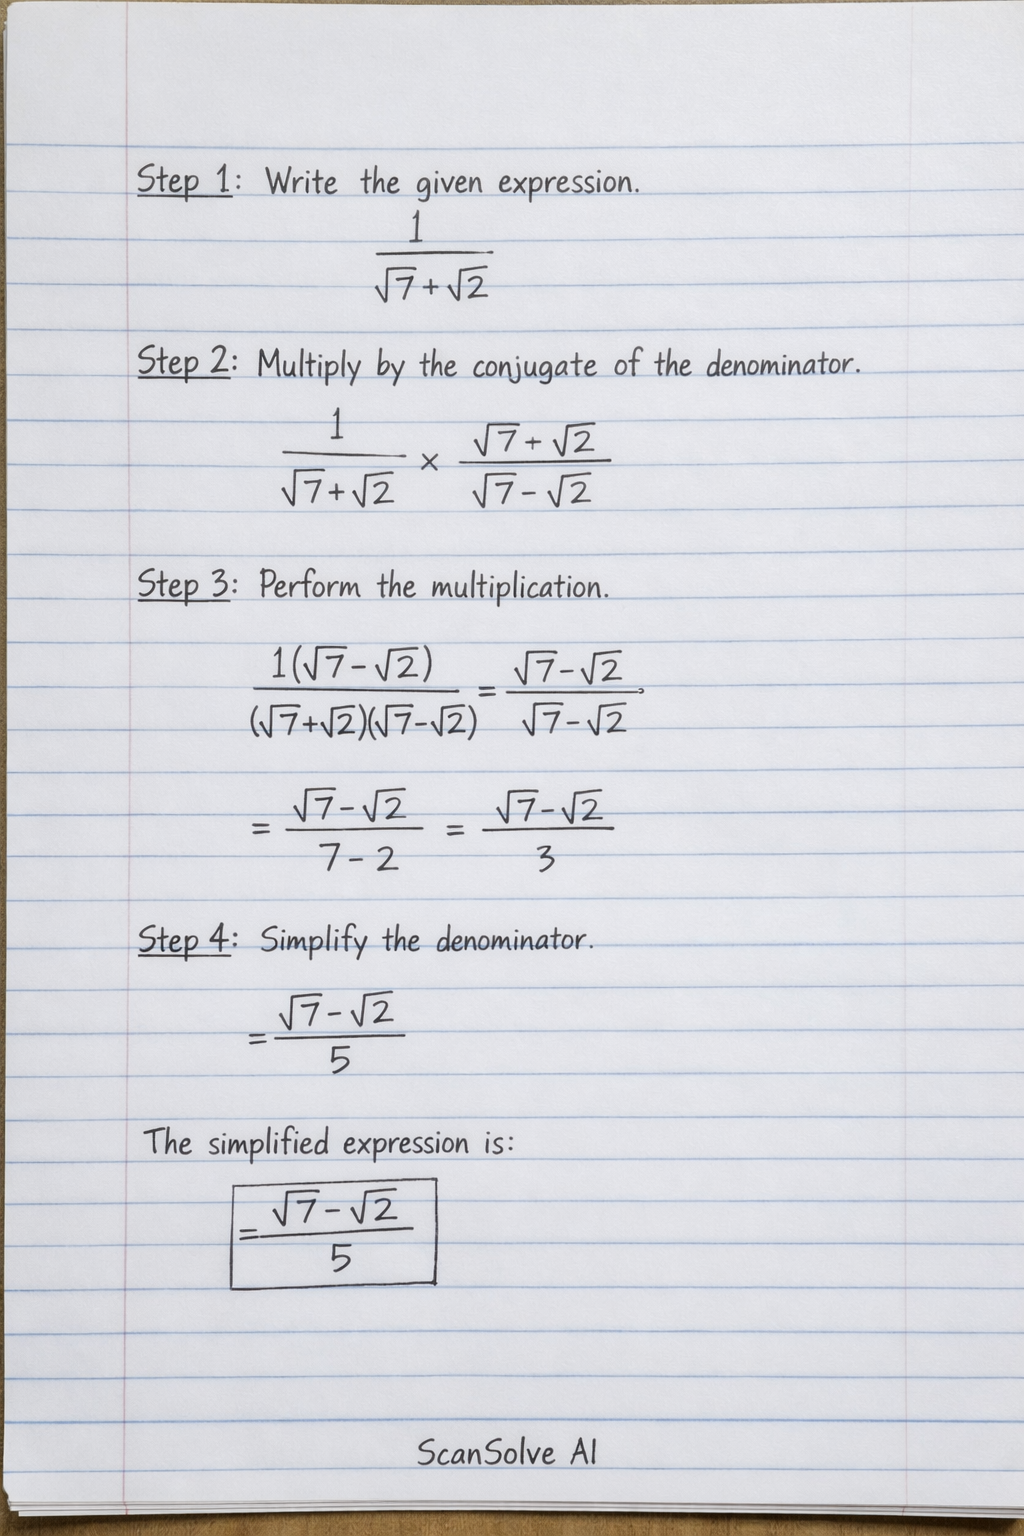 Step 1: Write the given expression.
1
√7+√2
Step 2: Multiply by the conjugate of the denominator.
1/(√7+√2) × (√7+√2)/(√7-√2)
Step 3: Perform the multiplication.
1(√7-√2)/(√7+√2)(√7-√2) = (√7-√2)/(√7-√2)
= (√7-√2)/(7-2) = (√7-√2)/3
Step 4: Simplify the denominator.
= (√7-√2)/5
The simplified expression is:
= (√7-√2)/5
ScanSolve AI